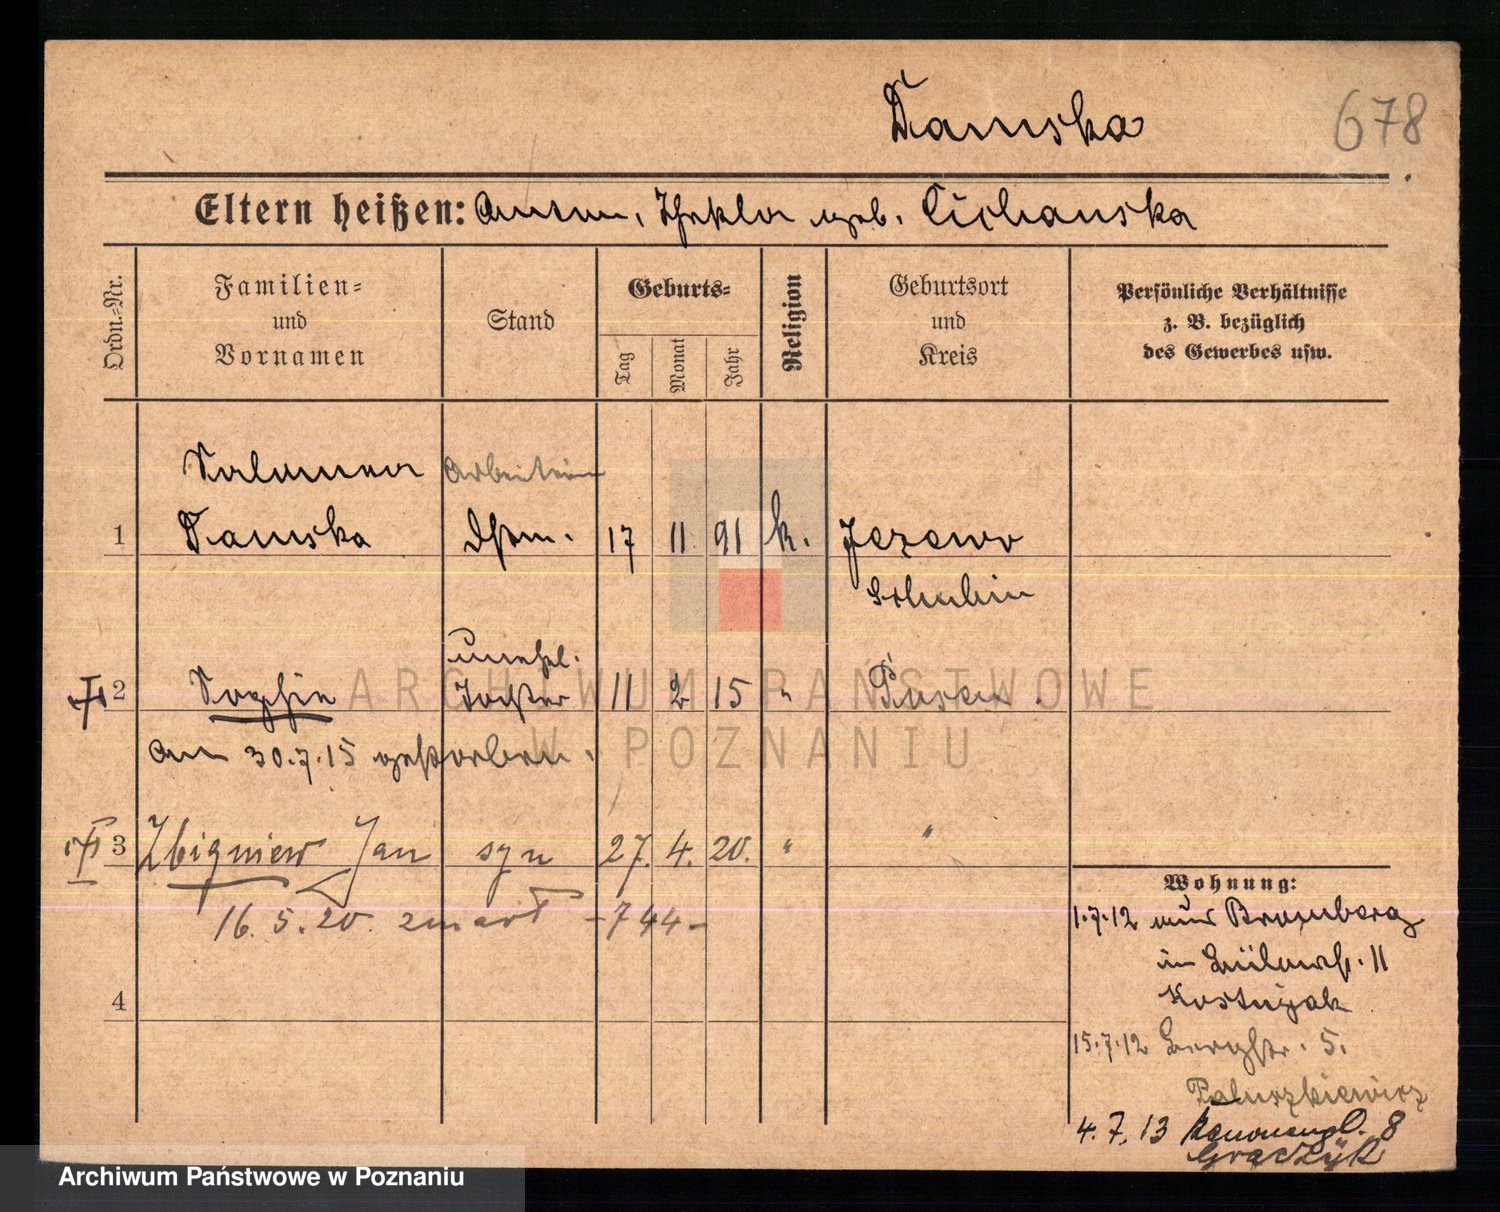 Damska
678
Eltern heißen: Anton, Thekla geb. Cichanska
Ordn.=Nr.
Familien=
und
Vornamen
Stand
Geburts=
Tag
Monat
Jahr
Religion
Geburtsort
und
Kreis
Persönliche Verhältnisse
z. B. bezüglich
des Gewerbes usw.
Salomea Arbeiterin
1 Damska 17 11 91 k. Jezewo
Schubin
unehl.
2 Sophie Tochter 11 2 15 " Posen
am 30.7.15 gestorben.
3 Zbigniew Jan syn 27. 4. 20. " "
16. 5. 20. zmarł -744-
4
Wohnung:
1.7.12 aus Bromberg
in Bülowst. 11
Kostujak
15.7.12 Bergstr. 5.
Paluszkiewicz
4.7.13 Kanonenpl. 8
Graczyk
ARCHIWUM PAŃSTWOWE
W POZNANIU
Archiwum Państwowe w Poznaniu